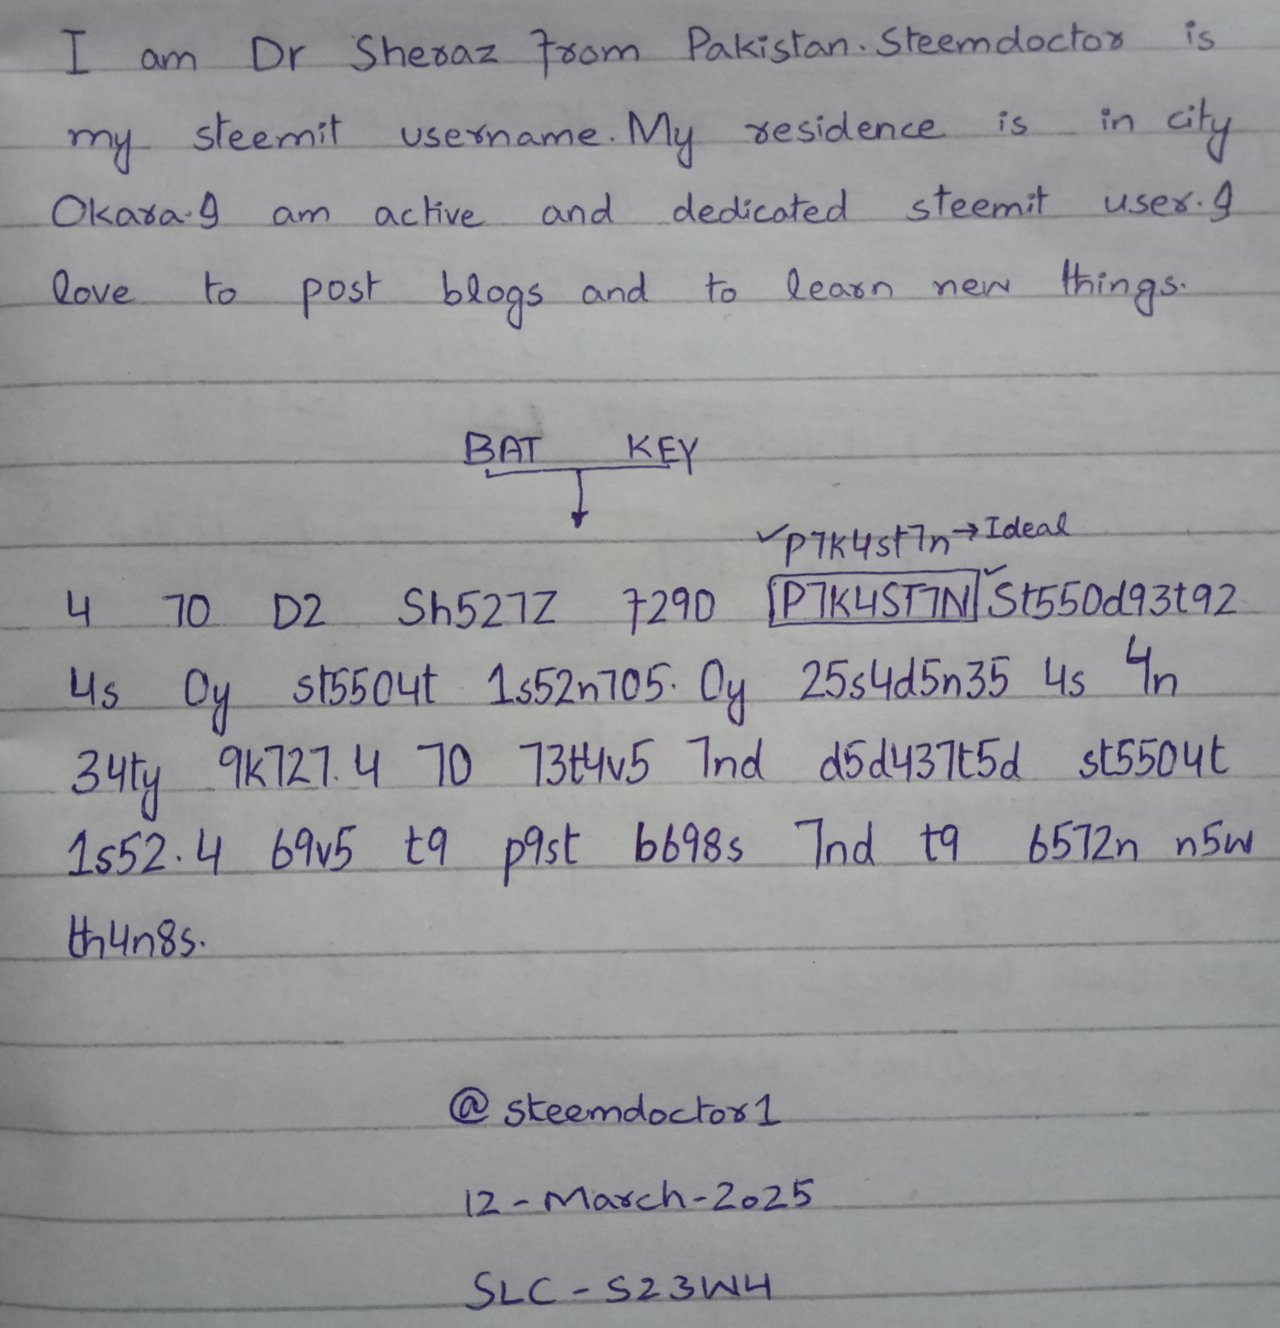 I am Dr Sheraz from Pakistan. Steemdoctor is
my steemit username. My residence is in city
Okara. I am active and dedicated steemit user. I
love to post blogs and to learn new things.
BAT KEY
✓P7K4st7n → Ideal
4 70 D2 Sh527Z 7290 P7K4ST7N ✓St550d93t92
4s 0y st5504t 1s52n705. 0y 25s4d5n35 4s 4n
34ty 9k727. 4 70 73t4v5 7nd d5d437t5d st5504t
1s52. 4 69v5 t9 p9st b698s 7nd t9 6572n n5w
th4n8s.
@steemdoctor1
12-March-2025
SLC-S23W4